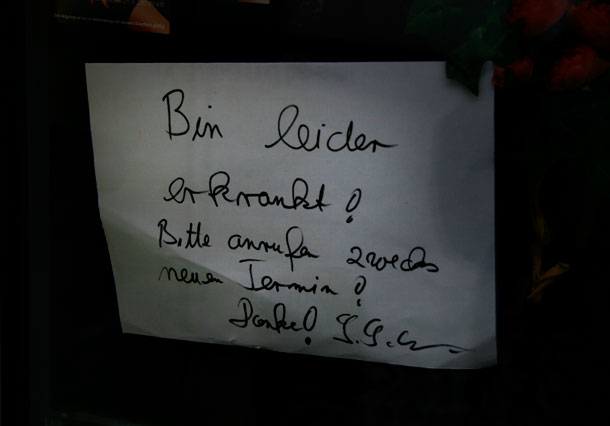 Bin leider
erkrankt!
Bitte anrufen zwecks
neuen Termin!
Danke!